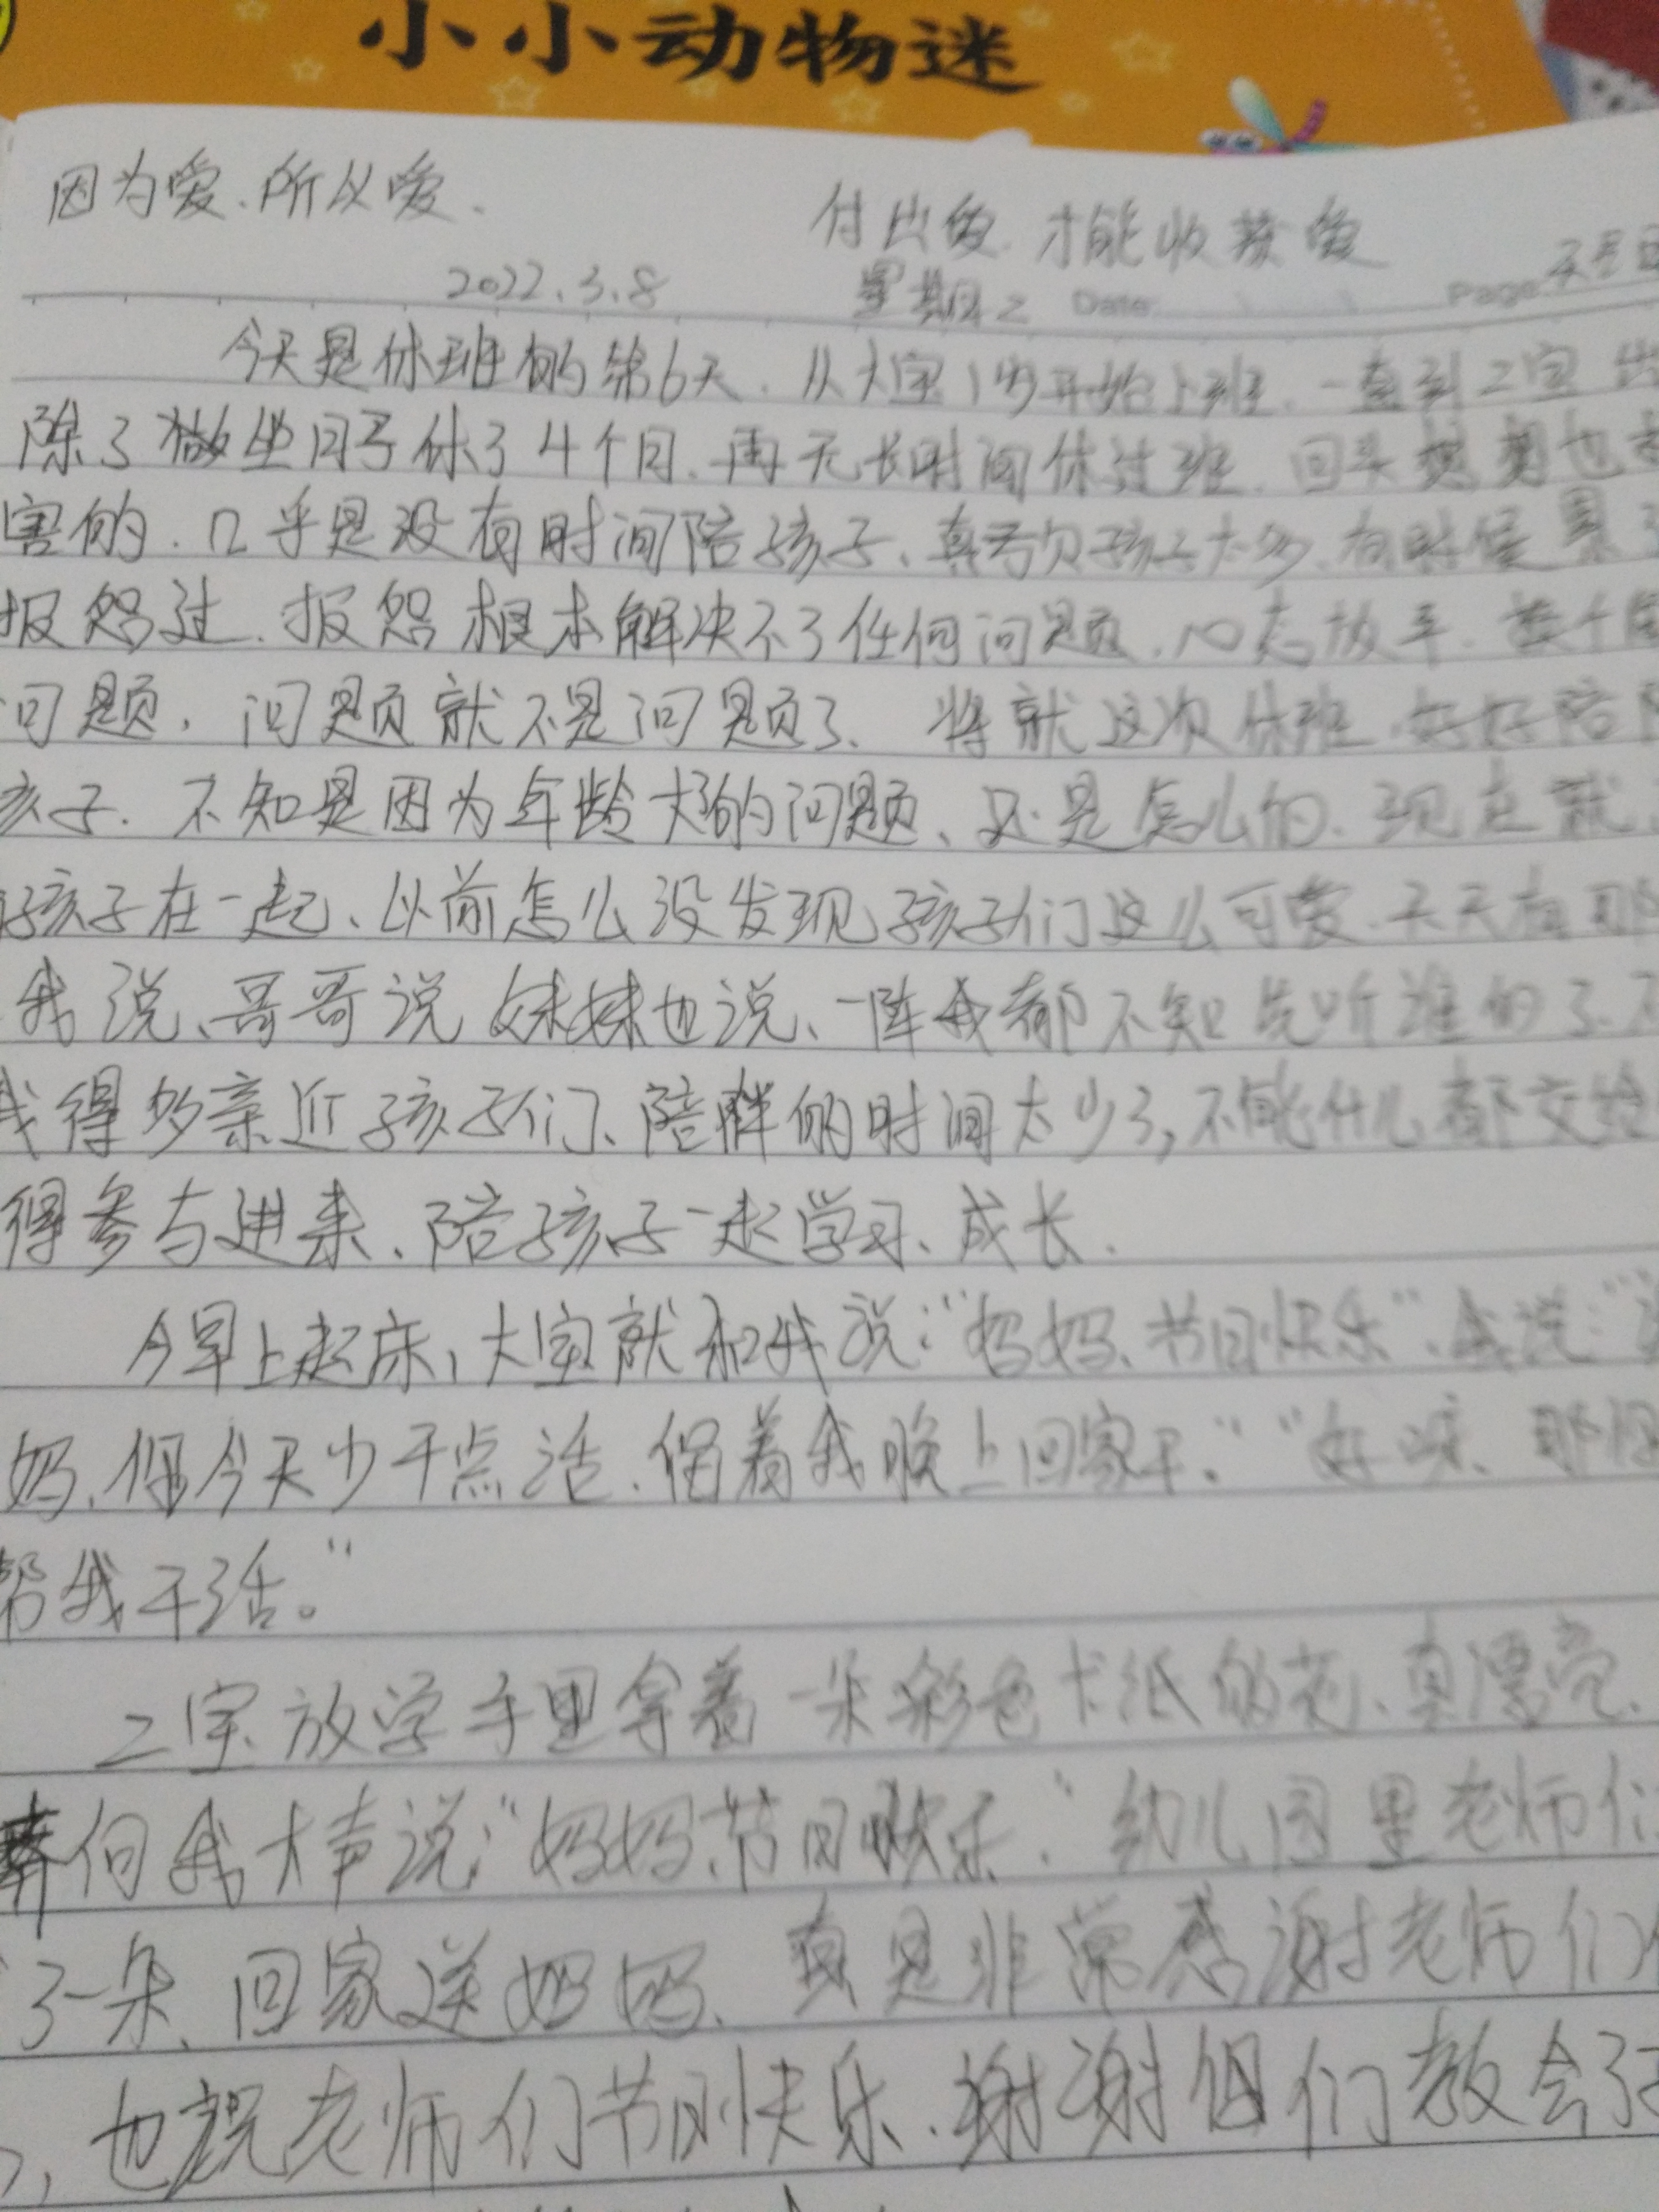 小小动物迷
因为爱.所以爱.
付出爱.才能收获爱
2022.3.8 星期二 Date Page
今天是休班的第6天.从大宝1岁开始上班.一直到二宝
除了做坐月子休了4个月.再无长时间休过班.回头想想也
害的.几乎是没有时间陪孩子、真亏欠孩子太多.有时候累
报怨过.报怨根本解决不了任何问题.心态放平.
问题.问题就不是问题了.将就这次休班.好好陪
孩子.不知是因为年龄大的问题、还是怎么的.现在就
孩子在一起、以前怎么没发现孩子们这么可爱.天天有
我说、哥哥说妹妹也说、一阵我都不知先听谁的了.
我得多亲近孩子们、陪伴的时间太少了,不能什么都交给
得参与进来、陪孩子一起学习、成长.
今早上起床,大宝就和我说:"妈妈、节日快乐".我说:"
妈、您今天少干点活.留着我晚上回家干.""好嘞、那
帮我干活。"
二宝放学手里拿着一朵彩色卡纸的花、真漂亮.
奔向我大声说:"妈妈、节日快乐."幼儿园里老师
了一朵、回家送妈妈.真是非常感谢老师们
,也祝老师们节日快乐.谢谢您们教会了